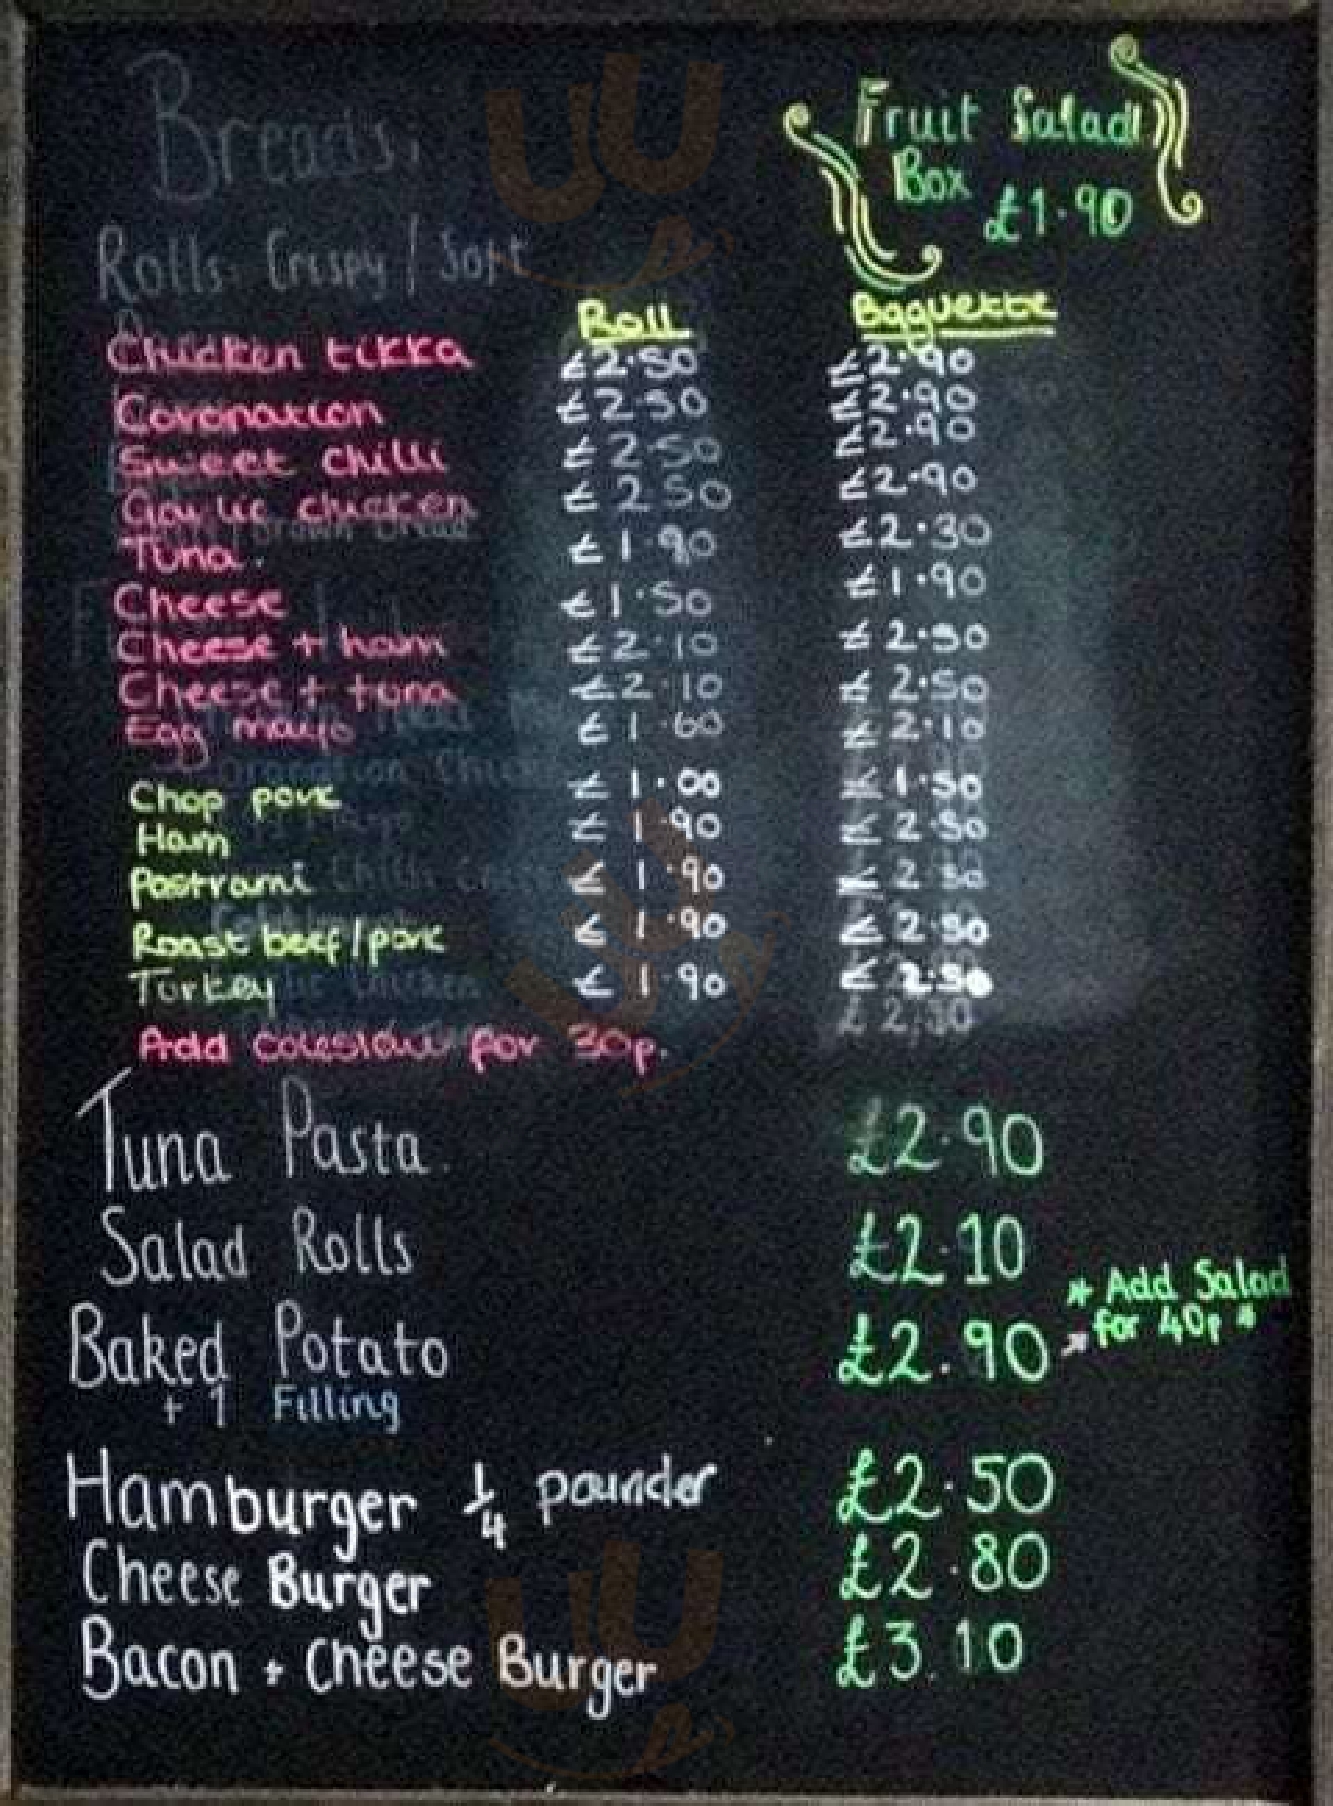 Breads.
Fruit Salad
Box £1.90
Rolls Crispy / Soft
Roll Baguette
Chicken tikka £2.50 £2.90
Coronation £2.50 £2.90
Sweet chilli £2.50 £2.90
Garlic chicken £2.50 £2.90
Tuna. £1.90 £2.30
Cheese £1.50 £1.90
Cheese + ham £2.10 £2.50
Cheese + tuna £2.10 £2.50
Egg mayo £1.60 £2.10
Chop pork £1.00 £1.50
Ham £1.90
Pastrami £1.90
Roast beef/pork £1.90
Turkey £1.90
Add coleslaw for 30p.
Tuna Pasta. £2.90
Salad Rolls £2.10
* Add Salad
for 40p *
Baked Potato £2.90
+ 1 Filling
Hamburger 1/4 pounder £2.50
Cheese Burger £2.80
Bacon + Cheese Burger £3.10